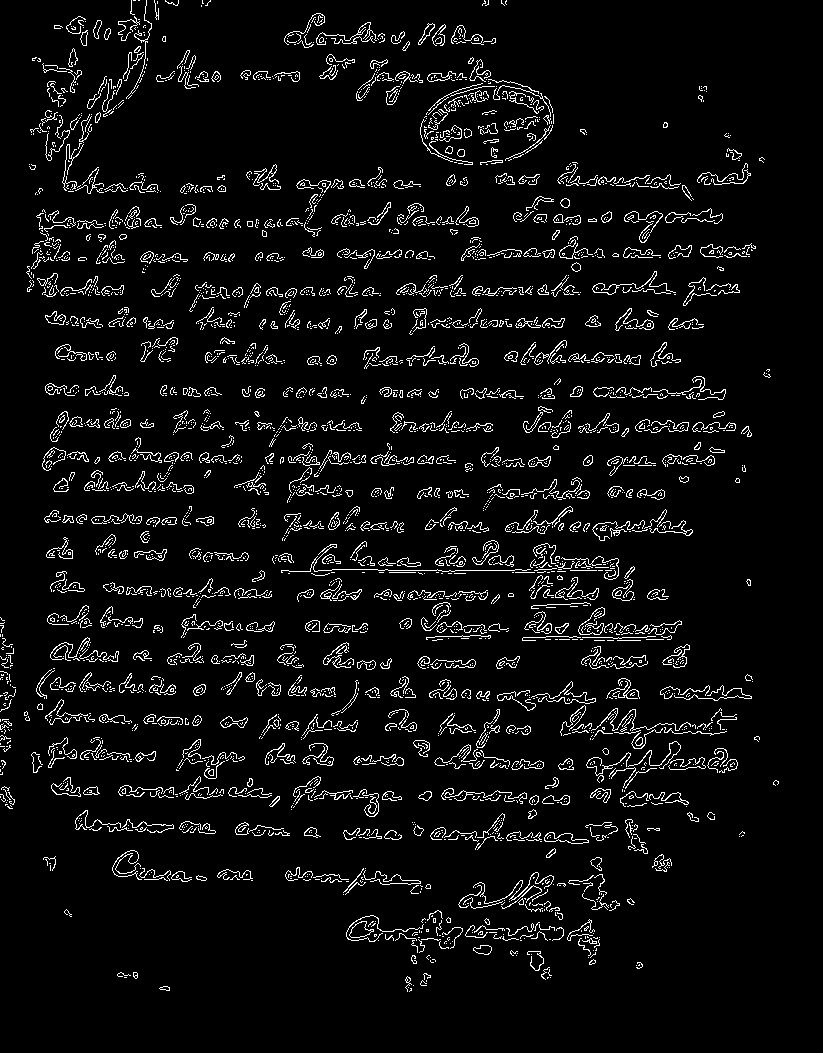 Londres, 16 De
Meo caro Dr Jaguaribe
Ainda não lhe agradeci os seos discursos, na
sembléa Provincial de S. Paulo Faço-o agora
lhe que nu ca se esqueça de mandar-me os seos
balhos A propaganda abolicionista conta pou
servidores tão uteis, tão prestimosos e tão
como VE Falta ao partido abolicionista
mente uma só coisa, mas essa é o nervo das
pela imprensa Dinheiro Talento, coração,
gem, abnegação independencia, temos o que não
é dinheiro Se fosse os um partido rico
encarregal-o de publicar obras abolicionistas
de livros como a Cabana do Pae Thomaz,
da emancipação e dos escravos, - Vidas de a
celebres, poesias como o Poema dos Escravos
Alves e de livros como os de
(sobretudo o 1º volume) e de documentos da nossa
torica, como os papeis do trafico Infelizmente
podemos fazer tudo isso Admiro e applaudo
sua constancia, firmeza e convicção
honrou-me com a sua confiança
Creia-me sempre
de VE